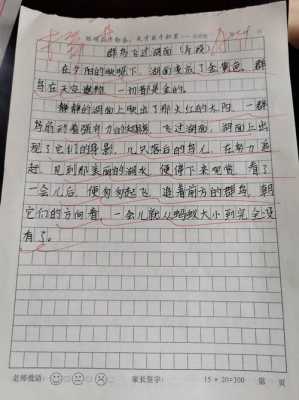 群鸟飞过湖面(片段)
在夕阳的映照下,湖面变成了金黄色,群
鸟在天空翱翔,一切都是金的。
静静的湖面上映出了那火红的太阳,一群
鸟扇动着强有力的翅膀,飞过湖面,湖面上出
现了它们的倒影,几只落后的鸟儿,在努力追
赶,见到那美丽的湖水,便停下来观赏,看了
一会儿后,便匆匆起飞,追着前方的群鸟,朝
它们的方向看,一会儿就从蚂蚁大小到完全没
有了。
老师批语:
家长签字:
15×20=300
第 页